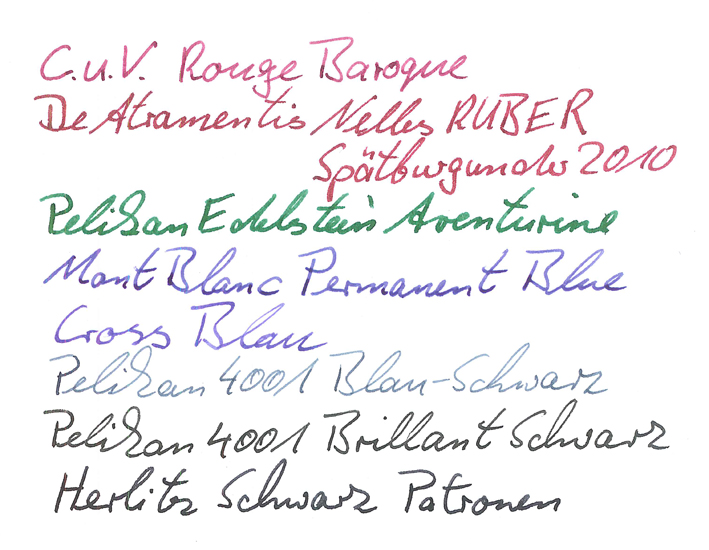 C.u.V. Rouge Baroque
De Atramentis Nelles RUBER
Spätburgunder 2010
Pelikan Edelstein Aventurine
Mont Blanc Permanent Blue
Cross Blau
Pelikan 4001 Blau-Schwarz
Pelikan 4001 Brillant Schwarz
Herlitz Schwarz Patronen